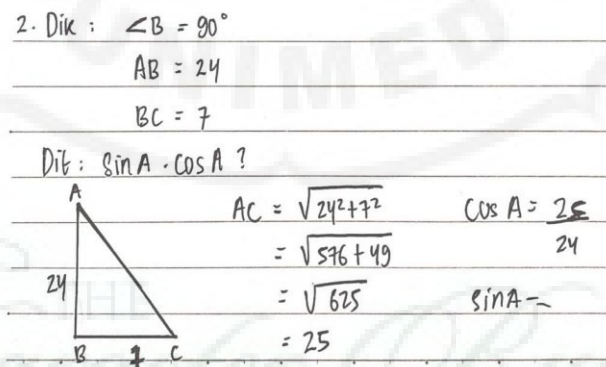 2. Dik : ∠B = 90°
AB = 24
BC = 7
Dit : sin A . cos A ?
A
24
B 7 C
AC = √24²+7²
= √576 + 49
= √625
= 25
cos A = 25
24
sin A -
UNIMED
THE